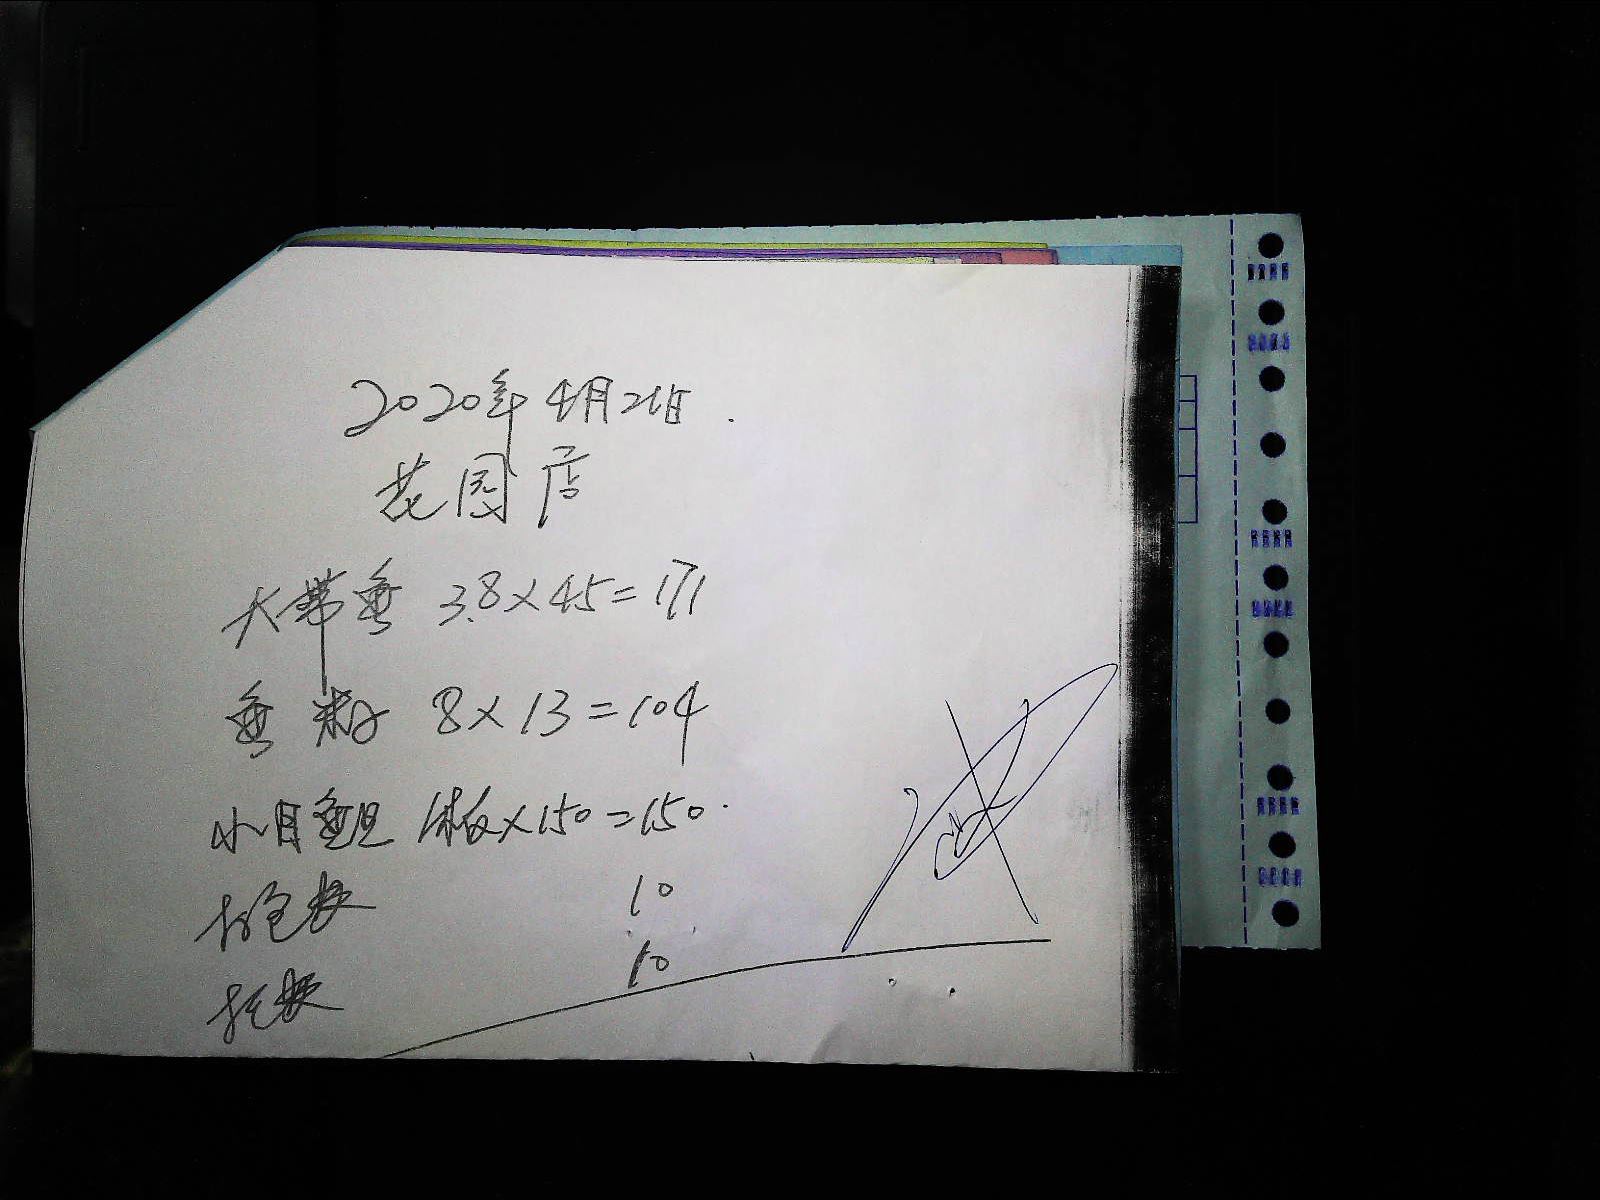 2020年4月21日.
花园店
大带鱼 3.8×45=171
鱼籽 8×13=104
小目鱼旦 1板×150=150.
打包费 10
托费 10